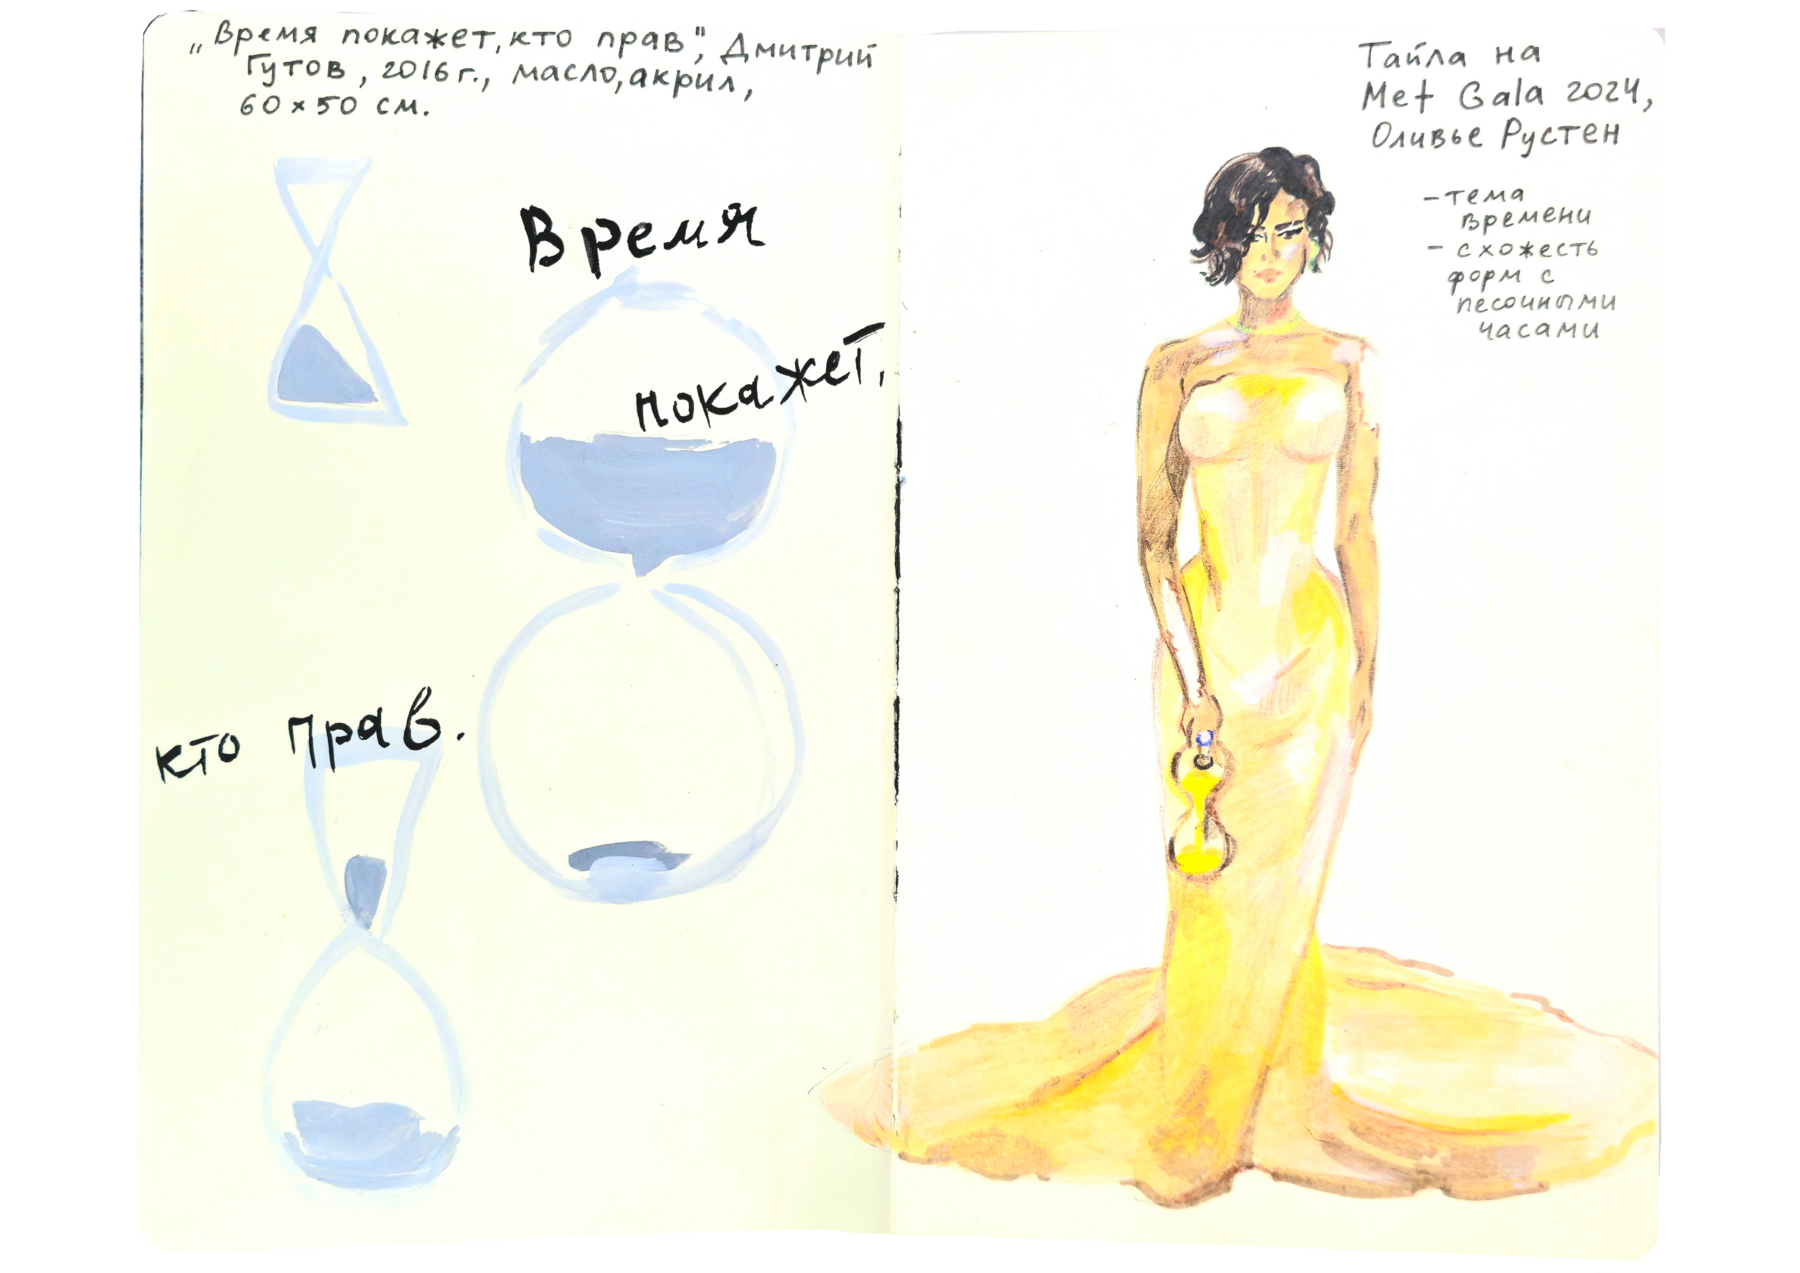 „Время покажет, кто прав", Дмитрий
Гутов, 2016 г., масло, акрил,
60 × 50 см.
Время
покажет,
кто прав.
Тайла на
Met Gala 2024,
Оливье Рустен
- тема
времени
- схожесть
форм с
песочными
часами